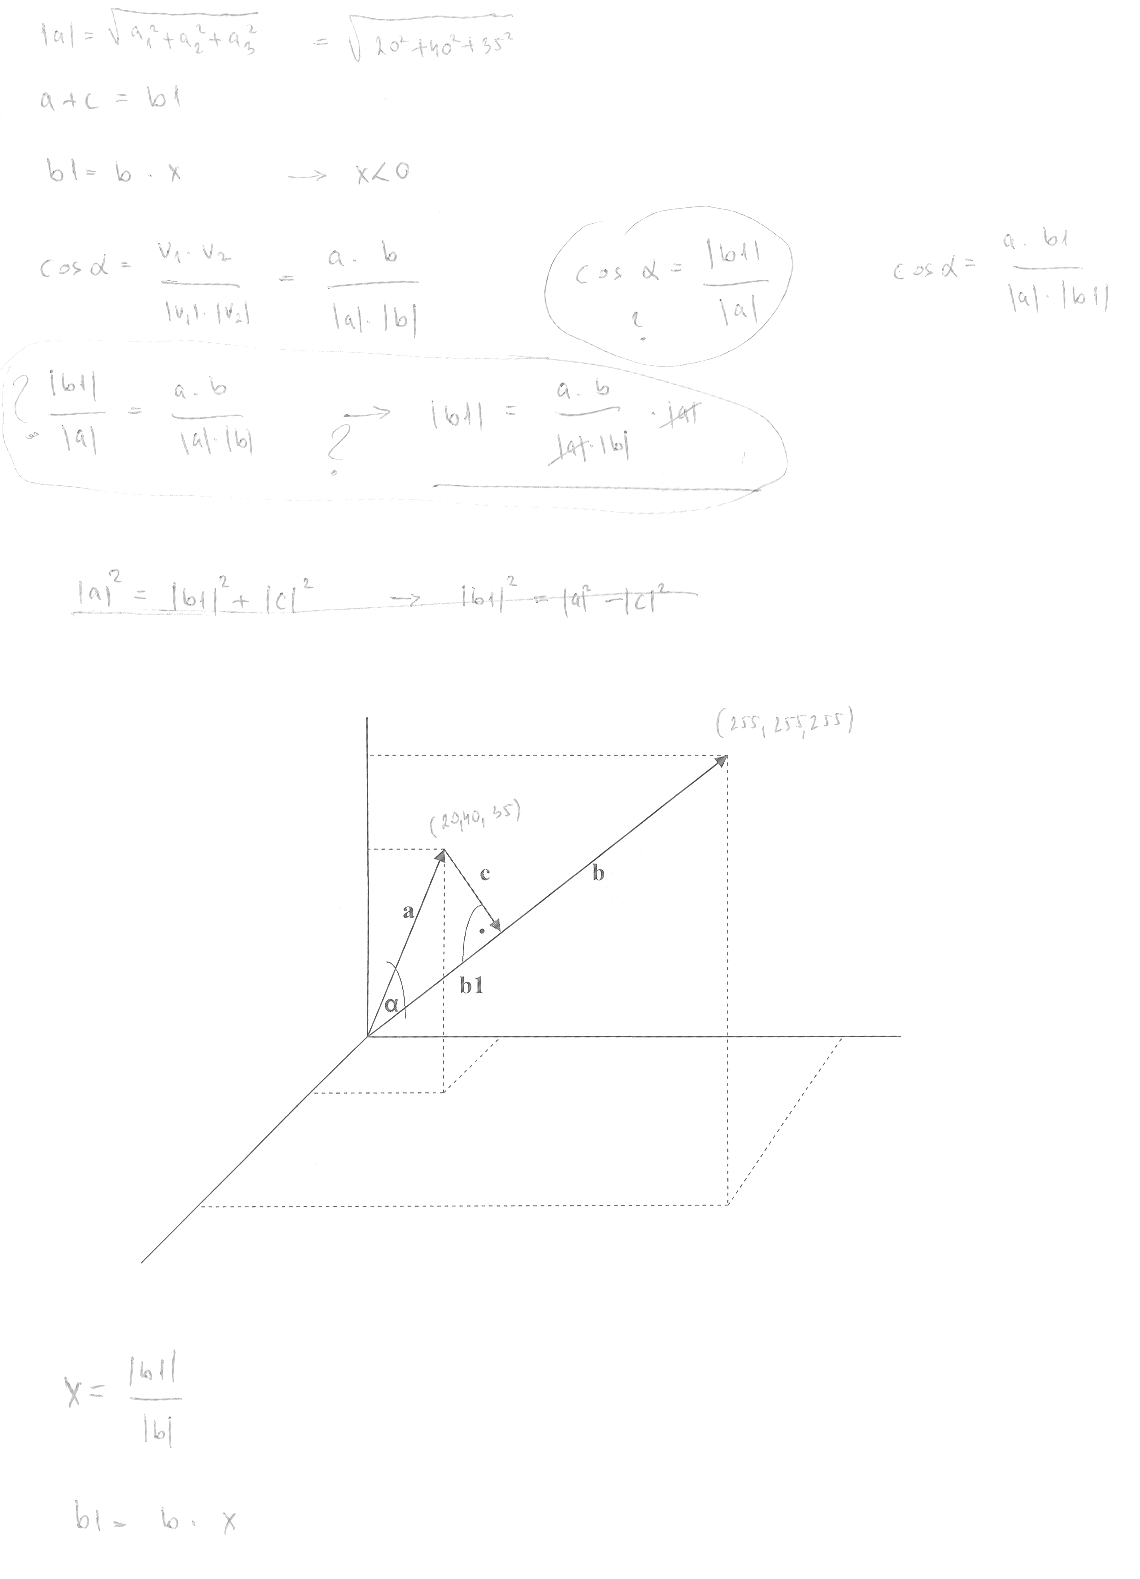 |a| = √(a₁² + a₂² + a₃²) = √(20² + 40² + 35²)
a + c = b1
b1 = b · x → x < 0
cos α = v₁ · v₂ / |v₁| · |v₂| = a · b / |a| · |b|
cos α = |b1| / |a|
?
cos α = a · b1 / |a| · |b1|
? |b1| / |a| = a · b / |a| · |b| ? → |b1| = a · b / |a| · |b| · |a|
|a|² = |b1|² + |c|² → |b1|² = |a|² - |c|²
(255, 255, 255)
(20, 40, 35)
c
b
a
b1
α
x = |b1| / |b|
b1 = b · x